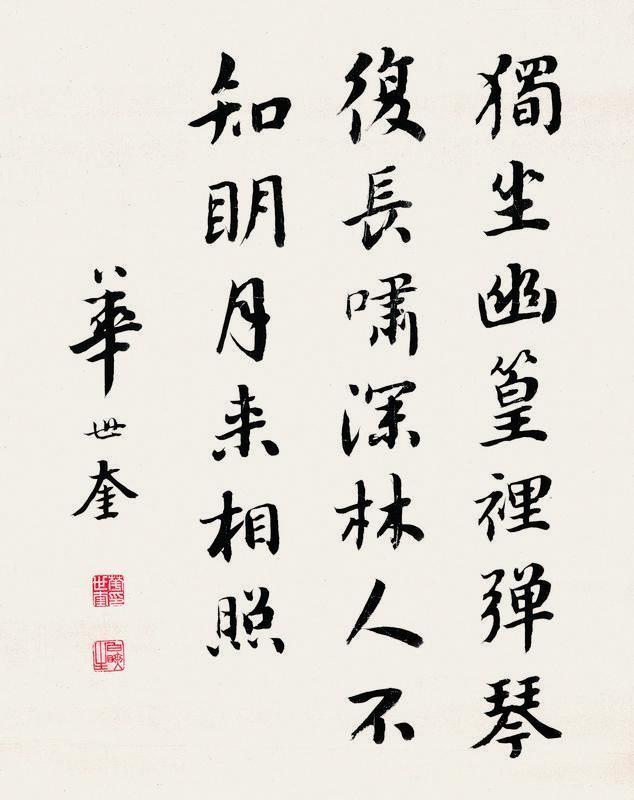 獨坐幽篁裡彈琴
復長嘯深林人不
知明月来相照
華世奎